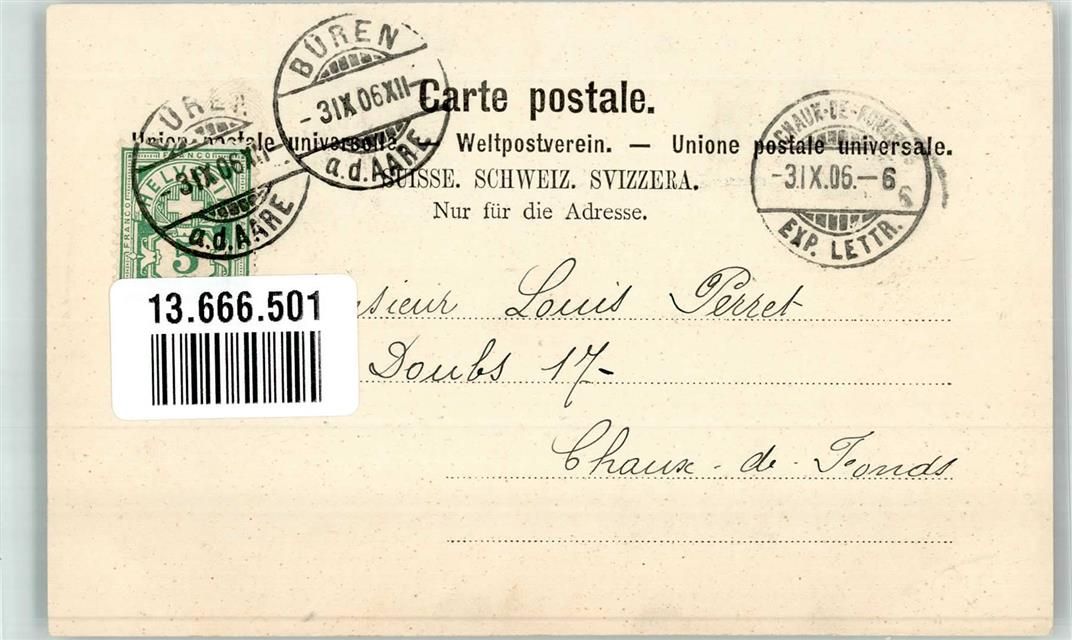 BÜREN
-3.IX.06XII-
a.d.AARE
ÜREN
-3.IX.06XII-
a.d.AARE
Carte postale.
Union postale universelle. — Weltpostverein. — Unione postale universale.
SUISSE. SCHWEIZ. SVIZZERA.
Nur für die Adresse.
CHAUX-DE-FONDS
-3.IX.06.-6
6
EXP. LETTR.
FRANCO
FRANCO
HELVETIA
5
13.666.501
sieur Louis Perret
Doubs 17-
Chaux-de-Fonds